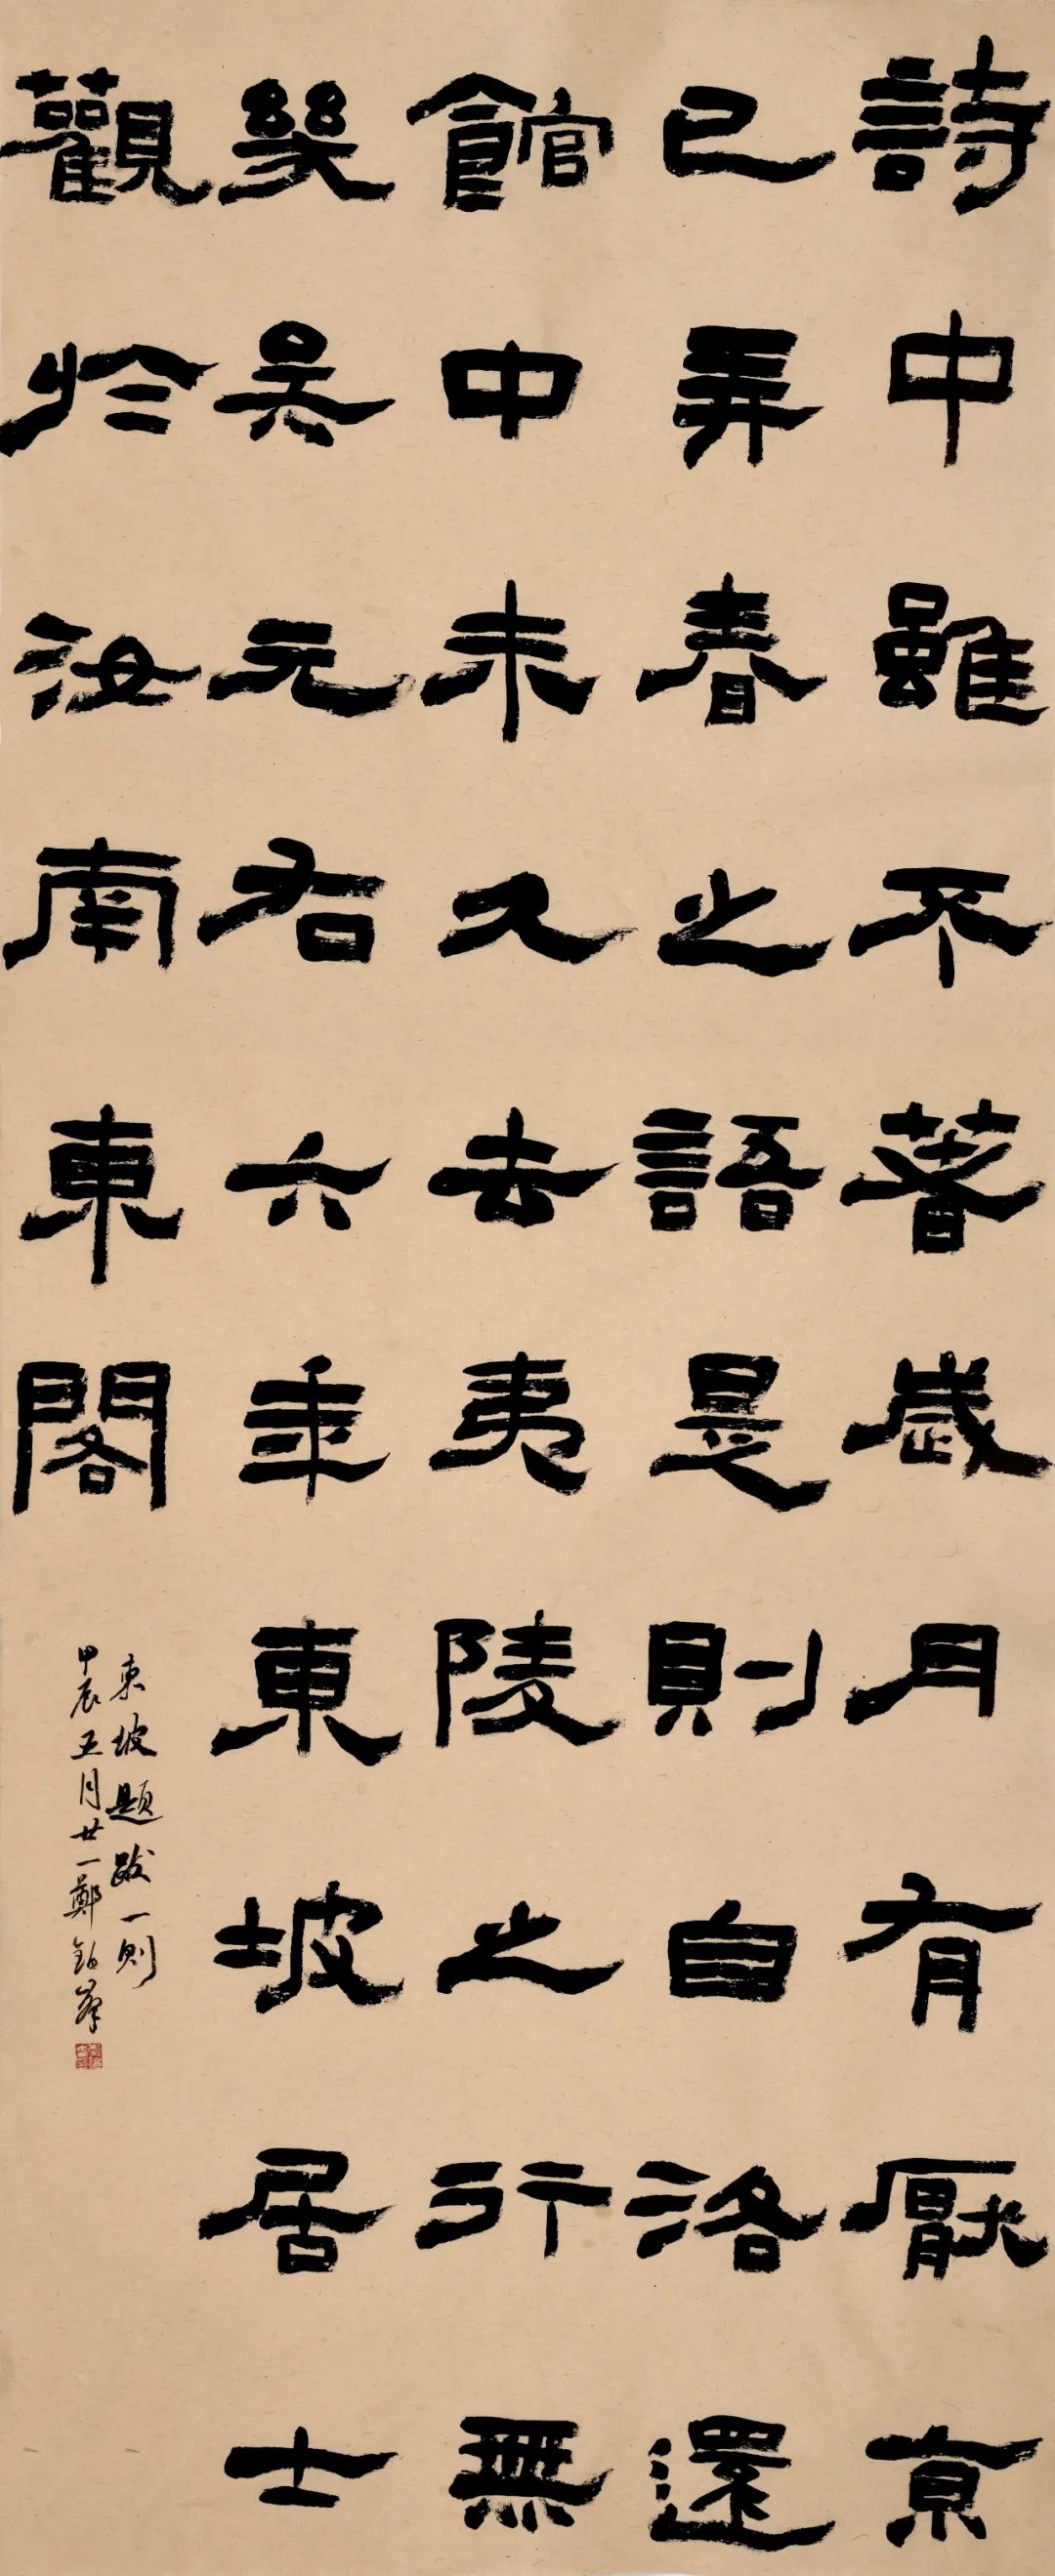 詩中雖不著歲月有厭京
已弄春之語是則自洛還
館中未久去夷陵之行無
幾吳元右六年東坡居士
觀於汝南東閣
東坡題跋一則
甲辰五月廿一鄭